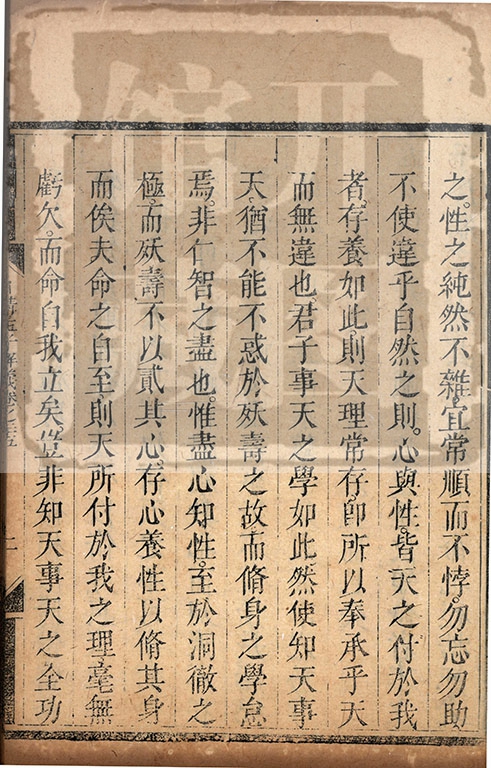 之性之純然不雜宜常順而不悖勿忘勿助
不使違乎自然之則心與性皆天之付於我
者存養如此則天理常存卽所以奉承乎天
而無違也君子事天之學如此然使知天事
天猶不能不惑於殀壽之故而脩身之學怠
焉非仁智之盡也惟盡心知性至於洞徹之
極而殀壽不以貳其心存心養性以脩其身
而俟夫命之自至則天所付於我之理毫無
虧欠而命自我立矣豈非知天事天之全功